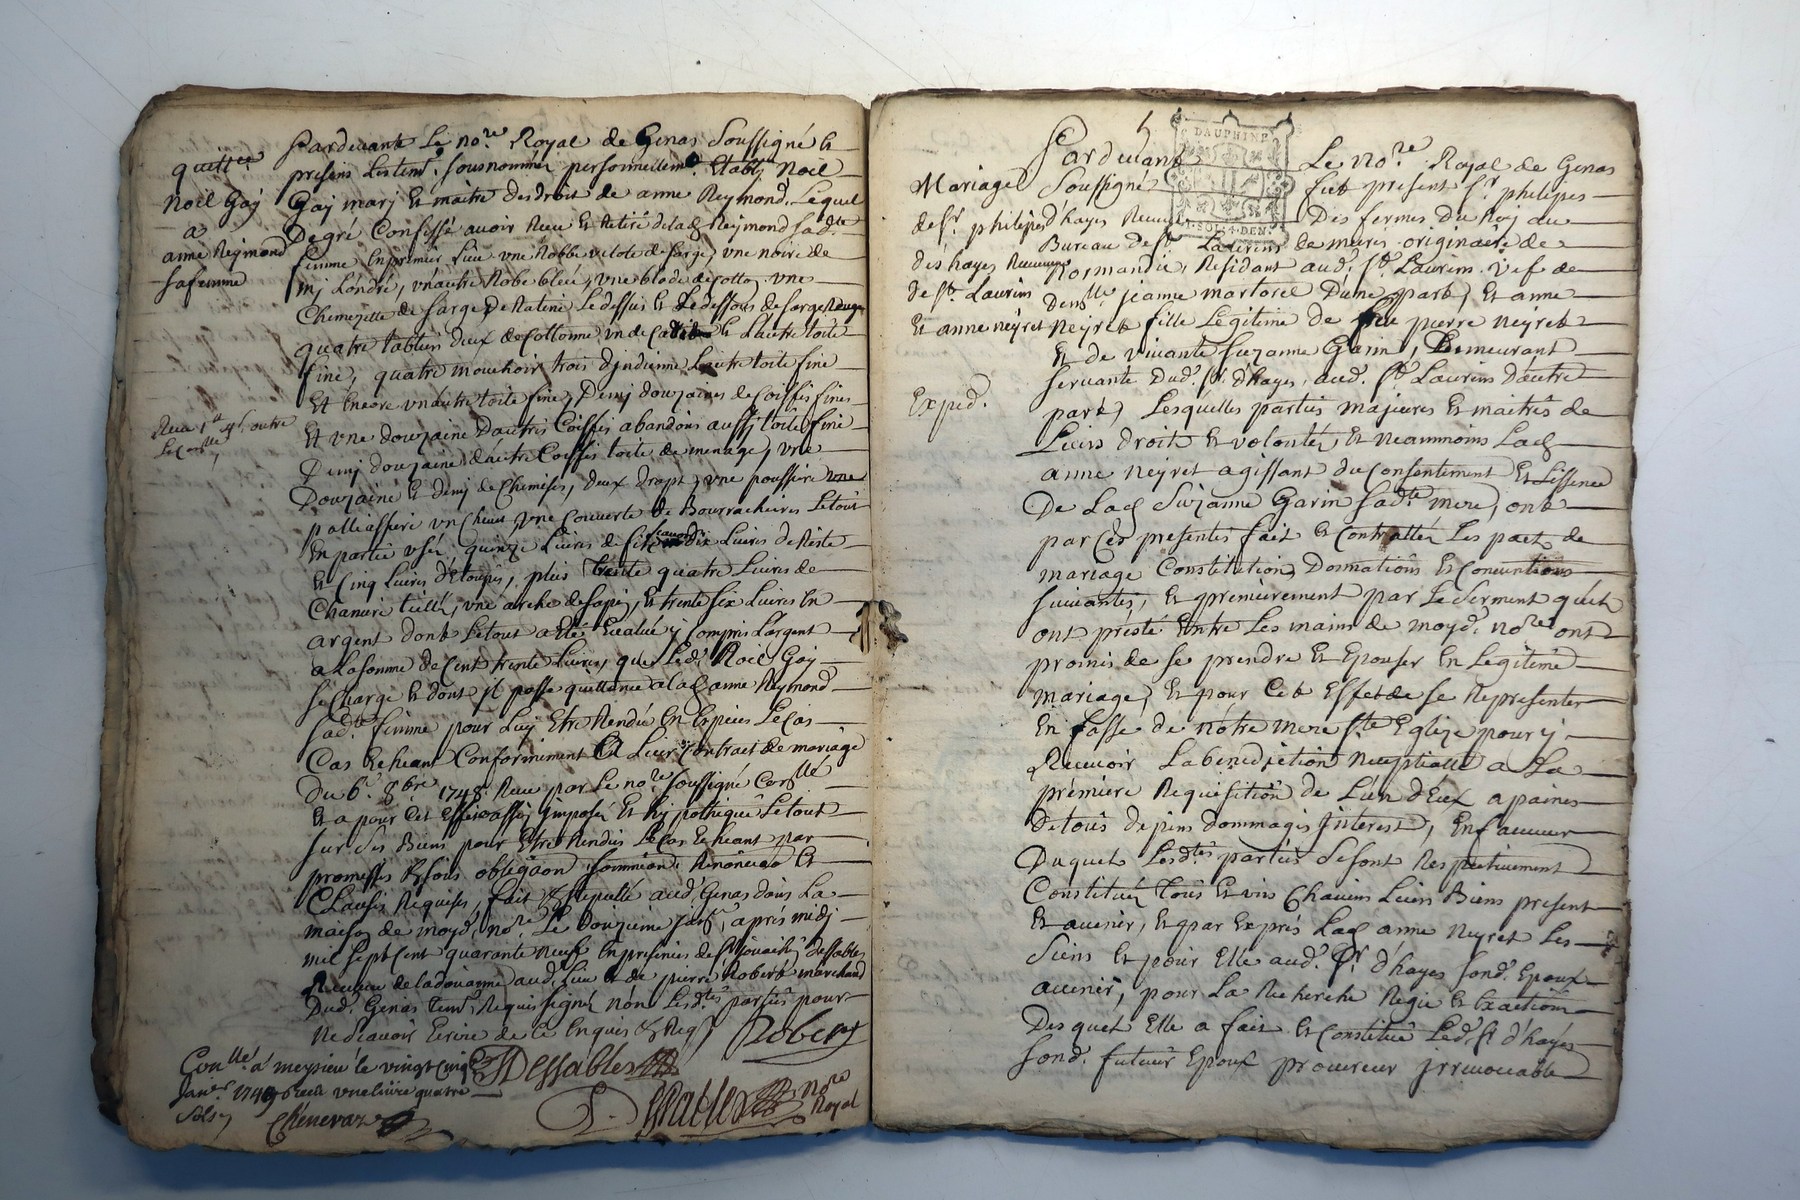 quittce
Noel Gaÿ
a
anne Reymond
sa femme
Pardeuant Le no.re Royal de Genas Soussigné et
presens Les tem. sousnommés personnellem.t Etably Noel
Gaÿ marj et maitre des droit de anne Reymond, Lequel
De gré Confesse auoir Receu et Retiré de lad. Reymond sad.te
femme En premier Lieu vne Robbe vilote de sarge, vne noire de
mj Londre, vn autre Robe bleu, vne blode de cotton, vne
Chemizette de sarge de Ratine Le dessus et Le dessous de sarge Rouge
quatre tabliers deux de Cottonne, un de et Lautre toile
fine, quatre mouchoir trois djndienne Lautre toile fine
Et Encore vn autre toile fine, Demj douzaines de Coiffes fines
Et vne douzaine Dautres Coiffes abandons aussi toile fine
Demj douzaine dautre Coiffes toile de menage, vne
Douzaine et demj de Chemises, deux drapt, vne poussiere vne
palliassiere vn Cheuet vne Couuerte de Bourracheires Letout
En partie vsée, quinze Liures de Liures de Riste
Et Cinq Liures d'Etoupes, plus trente quatre Liures de
Chanure tiellé, vne arche de sapin, et trente six Liures En
argent dont Letout a Eté Eualué y Compris Largent
a La somme de Cent trente Liures, que Led. Noel Gaÿ
se Charge et dont jl passe quittance a lad. anne Reymond
sad.te femme pour Luy Etre Rendue En Especes Le Cas
Cas Echeant Conformement a Leur Contrait de mariage
Du 6.e 8bre 1748 Receu par Le no.re soussigné Con.llé
Et a pour Cet Effet assis jmposé Et hÿpothequé Letout
sur ses Biens pour Etre Rendus Le Cas Echeant par
promesses Et sous obligaon soumission Renonciao et
Clauses Requises, fait et stipullé aud. Genas dans La
maison de moyd. no.re Le Douzieme jan.r apres midj
mil sept cent quarante neuf En presences de s.r Dessables
Receueur de la douanne aud. Lieu et de pierre Robert marchand
Dud. Genas tem. Requis signé non Lesd.tes partiës pour
ne Scauoir Ecrire de ce Enquis et Req.
Receu 1.st 4.s outre
Le Con.lle
Robert
Dessables
Dessables no.re Royal
Con.llé á meysieu le vingt cinq
Janv.r 1749 Receu vne liure quatre
Sols
Chenevaz
DAUPHINE
SOLS DEN.
Mariage
de S.r philipes
déshayes Receueur
de S.t Laurins
Et anne neyret
Exped.
Pardeuant Le no.re Royal de Genas
Soussigné fut present S.r philipes
d'hayes Receueur Des fermes Du Roy au
Bureau de S.t Laurens de mures originaire de
Normandie, Residant aud. S.t Laurens vef de
Dem.lle jeanne martorel Dune part, Et anne
Neyret fille Legitime de feu pierre neyret
Et de viuante suzanne Garin, Demeurant
seruante Dud. S.r d'hayes, aud. S.t Laurens Dautre
part, Lesquelles partiës majeures Et maitres de
Leurs droits Et volontés, Et neammoins Lad.
anne neyret agissant du Consentement Et Lissence
De Lad. Suzanne Garin sad.te mere, ont
par Ces presentes fait Et Contrattés Les pact de
mariage Constitution, Donnations Et Conuentions
suiuantes, Et premierement par Le serment quil
ont presté Entre Les mains de moyd. no.re ont
promis de se prendre Et Epouser En Legitime
mariage, Et pour Cet Effet de se Representer
En fasse de notre mere S.te Eglize pour ÿ
Receuoir La benediction Nuptialle a La
premiere Requisition de Lun d'Eux a paines
de tous depens dommages jnterest, En faueur
Duquel Lesd.tes partiës se sont Respectiuement
Constitués Tous Et vns Chacuns Leurs Biens present
Et auenir, Et par Exprés Lad. anne Neyret Les
Siens Et pour Elle aud. S.r d'hayes sond. Epoux
auenir, pour La Recherche Regie Et Exaction
Desquels Elle a fait Et Constitué Led. S.r d'hayes
sond. futeur Epoux procureur jrreuocable